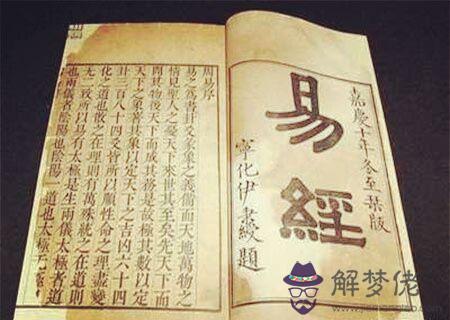 嘉慶十年冬至栞版
易經
寧化伊秉綬題
周易序
易之為書卦爻彖象之義備而天地萬物之
情見聖人之憂天下來世其至矣先天下而
開其物後天下而成其務是故極其數以定
天下之象著其象以定天下之吉凶六十四
卦三百八十四爻皆所以順性命之理盡變
化之道也散之在理則有萬殊統之在道則
无二致所以易有太極是生兩儀太極者道
也兩儀者陰陽也陰陽一道也太極无極也
解梦佬